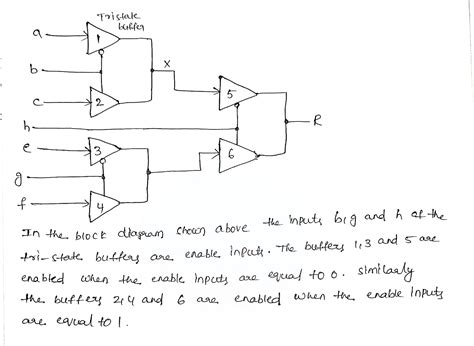 Tristate
buffer
a
1
b
X
c
2
5
h
R
e
3
6
g
f
4
In the block diagram shown above the inputs b, g and h of the
tri-state buffers are enable inputs. The buffers 1, 3 and 5 are
enabled when the enable inputs are equal to 0. Similarly
the buffers 2, 4 and 6 are enabled when the enable inputs
are equal to 1.